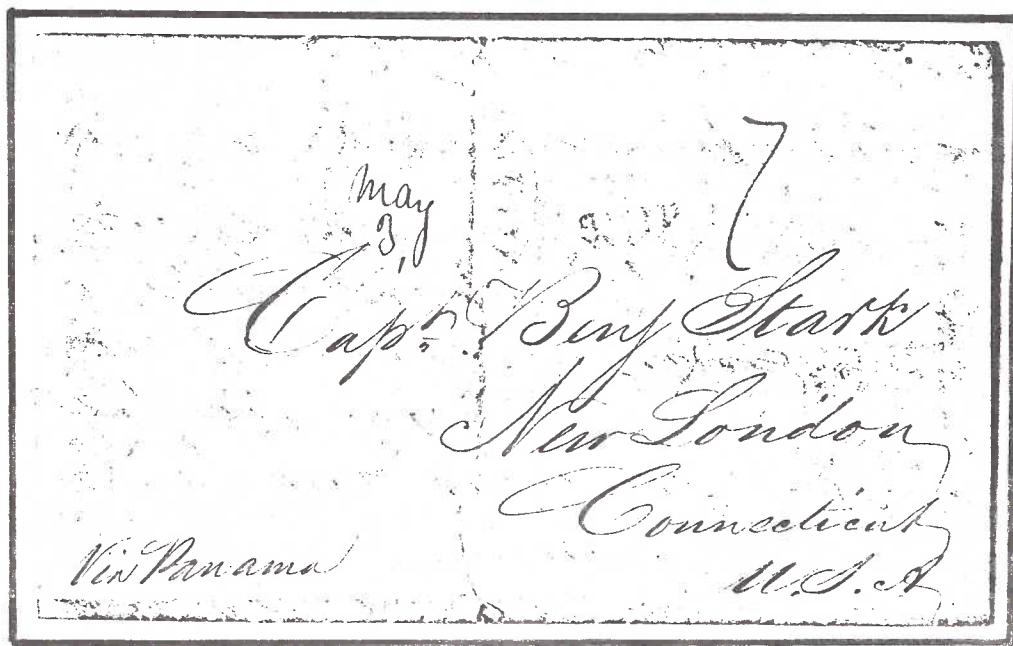 7
May
3,
Capt. Benj Stark
New London
Connecticut
U.S.A
Via Panama